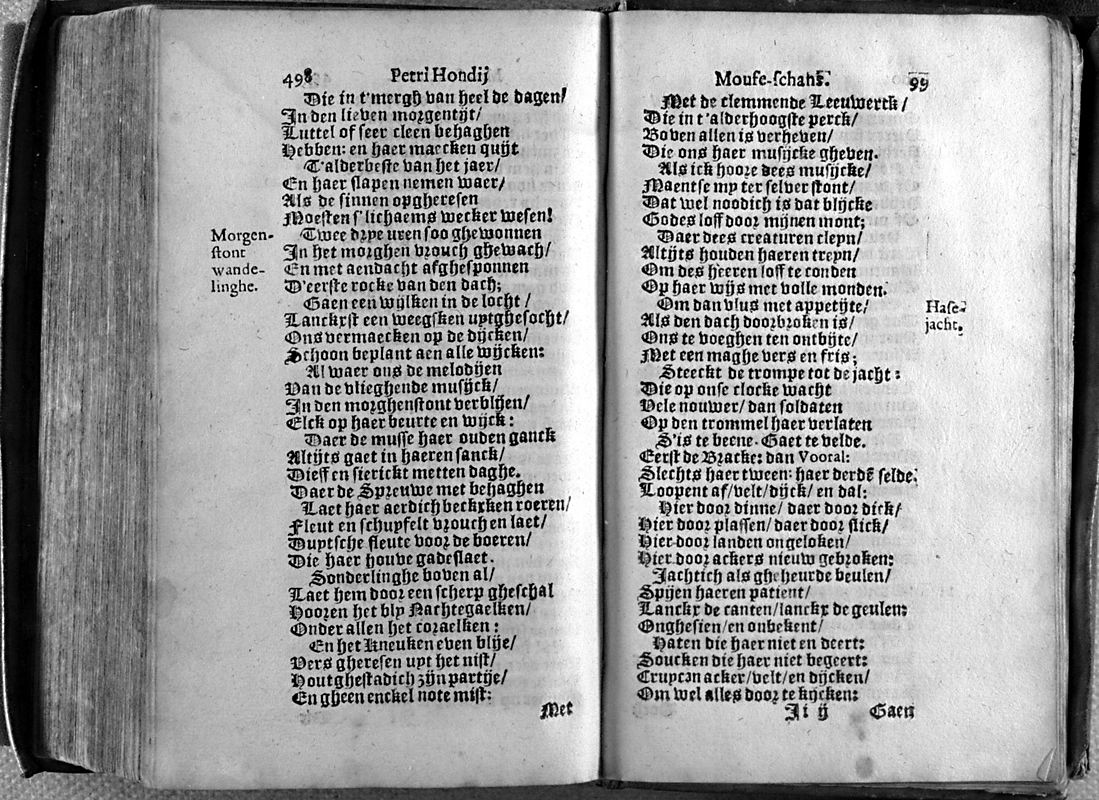 498 Petri Hondij
Die in t'mergh van heel de dagen/
In den lieven morgentijt/
Luttel of seer cleen behaghen
Hebben: en haer maecken quijt
T'alderbeste van het jaer/
En haer slapen nemen waer/
Als de sinnen opgheresen
Moesten s'lichaems wecker wesen!
Twee drye uren soo ghewonnen
In het morghen vrouch ghewach/
En met aendacht afghesponnen
D'eerste rocke van den dach;
Gaen een wijlken in de locht /
Lanckxst een weegsken uytghesocht/
Ons vermaecken op de dijcken/
Schoon beplant aen alle wijcken:
Al waer ons de melodijen
Van de vlieghende musijck/
In den morghenstont verblijen/
Elck op haer beurte en wijck:
Daer de musse haer ouden ganck
Altijts gaet in haeren sanck/
Dieff en sierickt metten daghe.
Daer de Spreuwe met behaghen
Laet haer aerdich beckxken roeren/
Fleut en schuyfelt vrouch en laet/
Duytsche fleute voor de boeren/
Die haer houve gadeslaet.
Sonderlinghe boven al/
Laet hem door een scherp gheschal
Hooren het bly Nachtegaelken/
Onder allen het coraelken:
En het Kneuken even blije/
Vers gheresen uyt het nist/
Houtghestadich zijn partije/
En gheen enckel note mist:
Met
Morgen-
stont
wande-
linghe.
Mouse-schans. 99
Met de clemmende Leeuwerck/
Die in t'alderhoogste perck/
Boven allen is verheven/
Die ons haer musijcke gheven.
Als ick hoore dees musijcke/
Maentse my ter selver stont/
Dat wel noodich is dat blijcke
Godes loff door mijnen mont;
Daer dees creaturen cleyn/
Altijts houden haeren treyn/
Om des heeren loff te conden
Op haer wijs met volle monden.
Om dan vlus met appetijte/
Als den dach doorbroken is/
Ons te voeghen ten ontbijte/
Met een maghe vers en fris;
Steeckt de trompe tot de jacht:
Die op onse clocke wacht
Vele nouwer/ dan soldaten
Op den trommel haer verlaten
S'is te beene. Gaet te velde.
Eerst de Bracke: dan Vooral:
Slechts haer tween: haer derdē selde.
Loopent af/velt/dijck/ en dal:
Hier door dinne/ daer door dick/
Hier door plassen/ daer door slick/
Hier door landen ongeloken/
Hier door ackers nieuw gebroken:
Jachtich als gheheurde beulen/
Spijen haeren patient/
Lanckx de canten/lanckx de geulen:
Onghesien/en onbekent/
Haten die haer niet en deert:
Soucken die haer niet begeert:
Cruypen acker/velt/en dijcken/
Om wel alles door te kijcken:
Ii ij Gaen
Hase-
jacht.